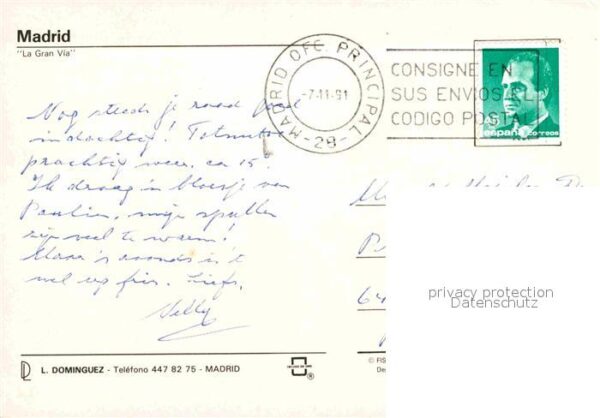 Madrid
"La Gran Vía"
MADRID OFC. PRINCIPAL
-7-11-91
-28-
CONSIGNE EN
SUS ENVIOS EL
CODIGO POSTAL
españa correos
Nog steeds je raad
indachtig! Tot nu toe
prachtig weer, ca 15°.
Ik draag 'n bloesje van
Paulien, mijn spullen
zijn veel te warm!
Maar 's avonds is 't
wel erg fris. Liefs,
Nelly
P
64
privacy protection
Datenschutz
L. DOMINGUEZ - Teléfono 447 82 75 - MADRID
® © FIS
De